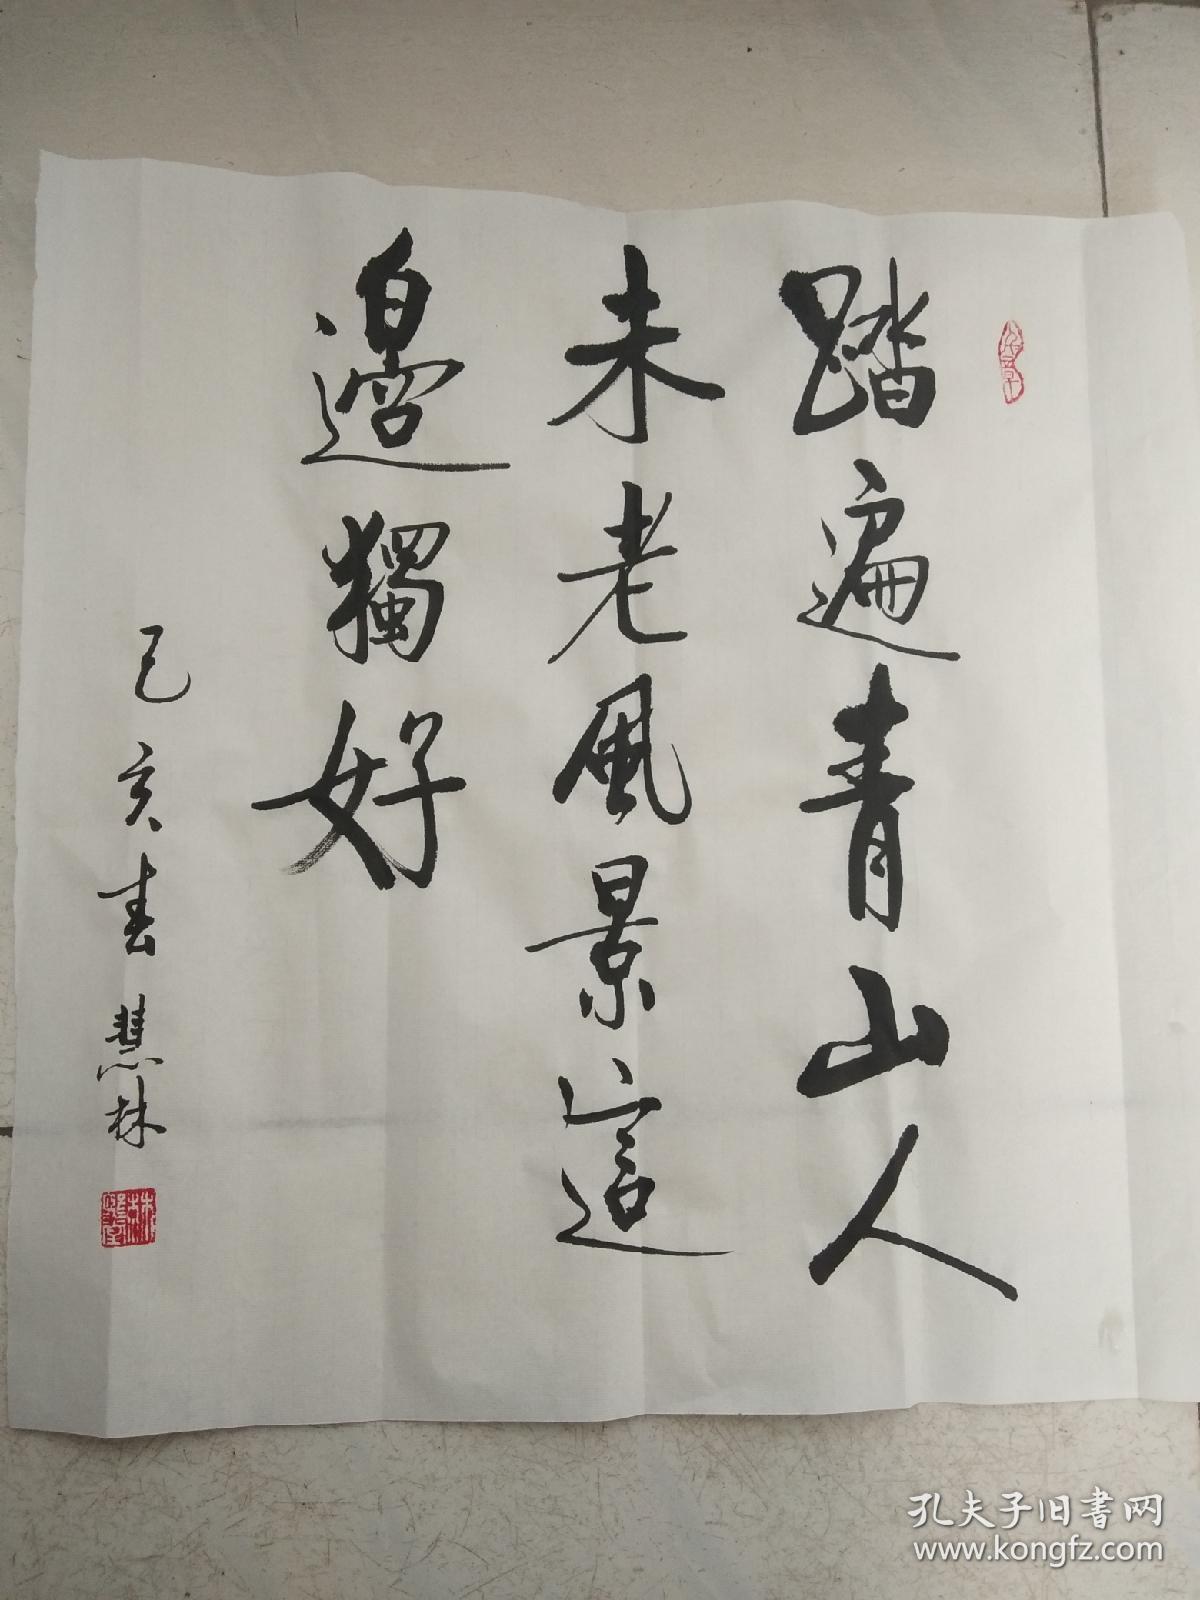 踏遍青山人
未老風景這
邊獨好
己亥春 慧林
孔夫子旧书网
www.kongfz.com